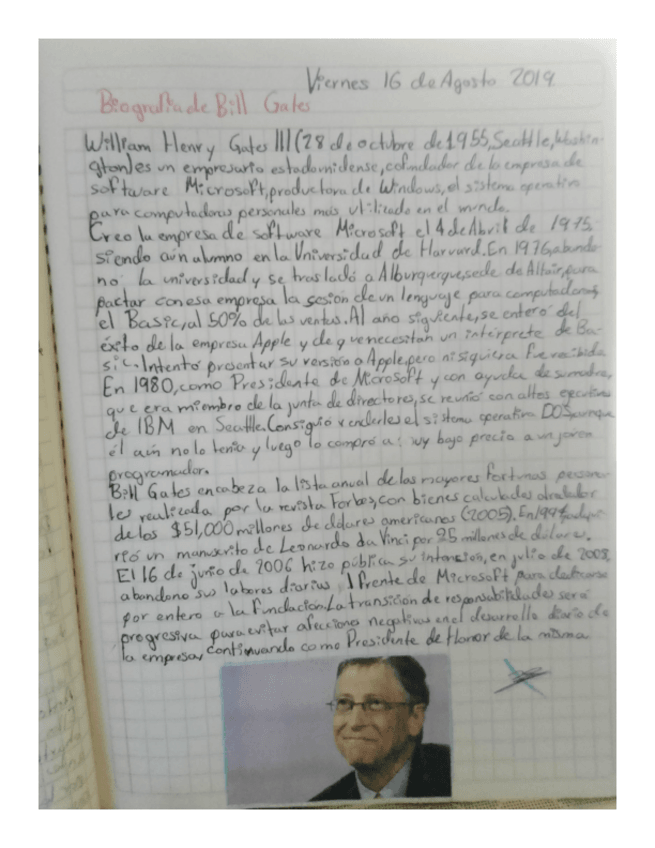 Viernes 16 de Agosto 2019
Biografia de Bill Gates
William Henry Gates III (28 de octubre de 1955, Seattle, Washin-
gton) es un empresario estadounidense, cofundador de la empresa de
software Microsoft, productora de Windows, el sistema operativo
para computadoras personales más utilizado en el mundo.
Creo la empresa de software Microsoft el 4 de Abril de 1975
siendo aún alumno en la Universidad de Harvard. En 1976, abando
nó la universidad y se trasladó a Alburquerque, sede de Altair, para
pactar con esa empresa la sesión de un lenguaje para computadoras,
el Basic, al 50% de las ventas. Al año siguiente, se enteró del
éxito de la empresa Apple y de que necesitan un intérprete de Ba-
sic. Intentó presentar su versión a Apple, pero ni siquiera fue recibido
En 1980, como Presidente de Microsoft y con ayuda de su madre,
que era miembro de la junta de directores, se reunió con altos ejecutivos
de IBM en Seattle. Consiguió venderles el sistema operativo DOS, aunque
él aún no lo tenía y luego lo compró a muy bajo precio a un joven
programador.
Bill Gates encabeza la lista anual de las mayores fortunas persona-
les realizada por la revista Forbes, con bienes calculados alrededor
de los $51,000 millones de dólares americanos (2005). En 1994, adqui-
rió un manuscrito de Leonardo da Vinci por 25 millones de dólares.
El 16 de junio de 2006 hizo pública su intención, en julio de 2008,
abandono sus labores diarias frente de Microsoft para dedicarse
por entero a la Fundación. La transición de responsabilidades será
progresiva para evitar afecciones negativas en el desarrollo diario de
la empresa, continuando como Presidente de Honor de la misma